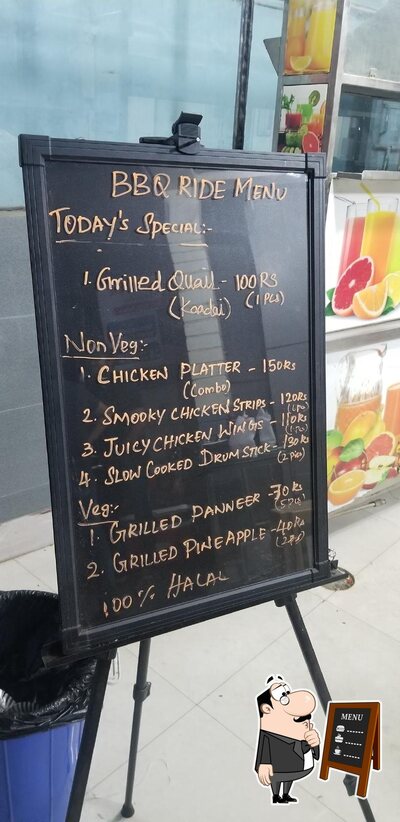 BBQ RIDE MENU
TODAY'S SPECIAL:-
1. Grilled Quail - 100 RS
(Kaadai) (1 PCS)
Non Veg:-
1. CHICKEN PLATTER - 150RS
(Combo)
2. SMOOKY CHICKEN STRIPS - 120RS
3. JUICY CHICKEN WINGS - 110RS
4. SLOW COOKED DRUM STICK - 130 RS
Veg:-
1. GRILLED PANNEER - 70 RS
2. GRILLED PINEAPPLE - 40RS
100% HALAL
MENU